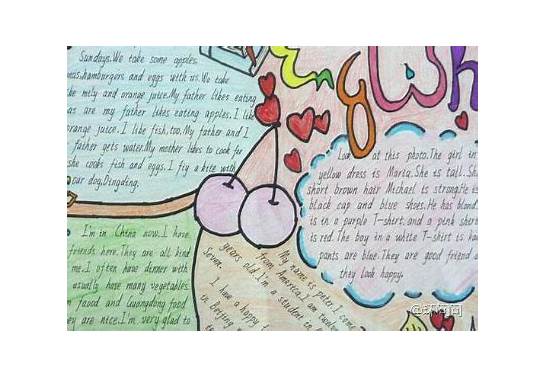 English
Sundays.We take some apples.
hamburgers and eggs with us.We take
mily and orange juice.My father likes eating
as are my father likes eating apples.I like
orange juice. I like fish,too.My father and I
father gets water.My mother likes to cook for
she cooks fish and eggs. I fly a kite with
our dog,Dingding.
I'm in China now.I have
friends here.They are all kind
me.I often have dinner with
usually have many vegetables.
favod and Guangdong food
are nice.I'm very glad to
My name is peter.I come
from America.I am
years old.I'm a student in
seven.
I have a happy
in Beijing
Look at this photo.The girl in
yellow dress is Maria.She is tall.She
short brown hair Michael is strong.He is
black cap and blue shoes.He has blond
is in a purple T-shirt.and a pink
is red.The boy in a white T-shirt is
pants are blue.They are good friend
they look happy.